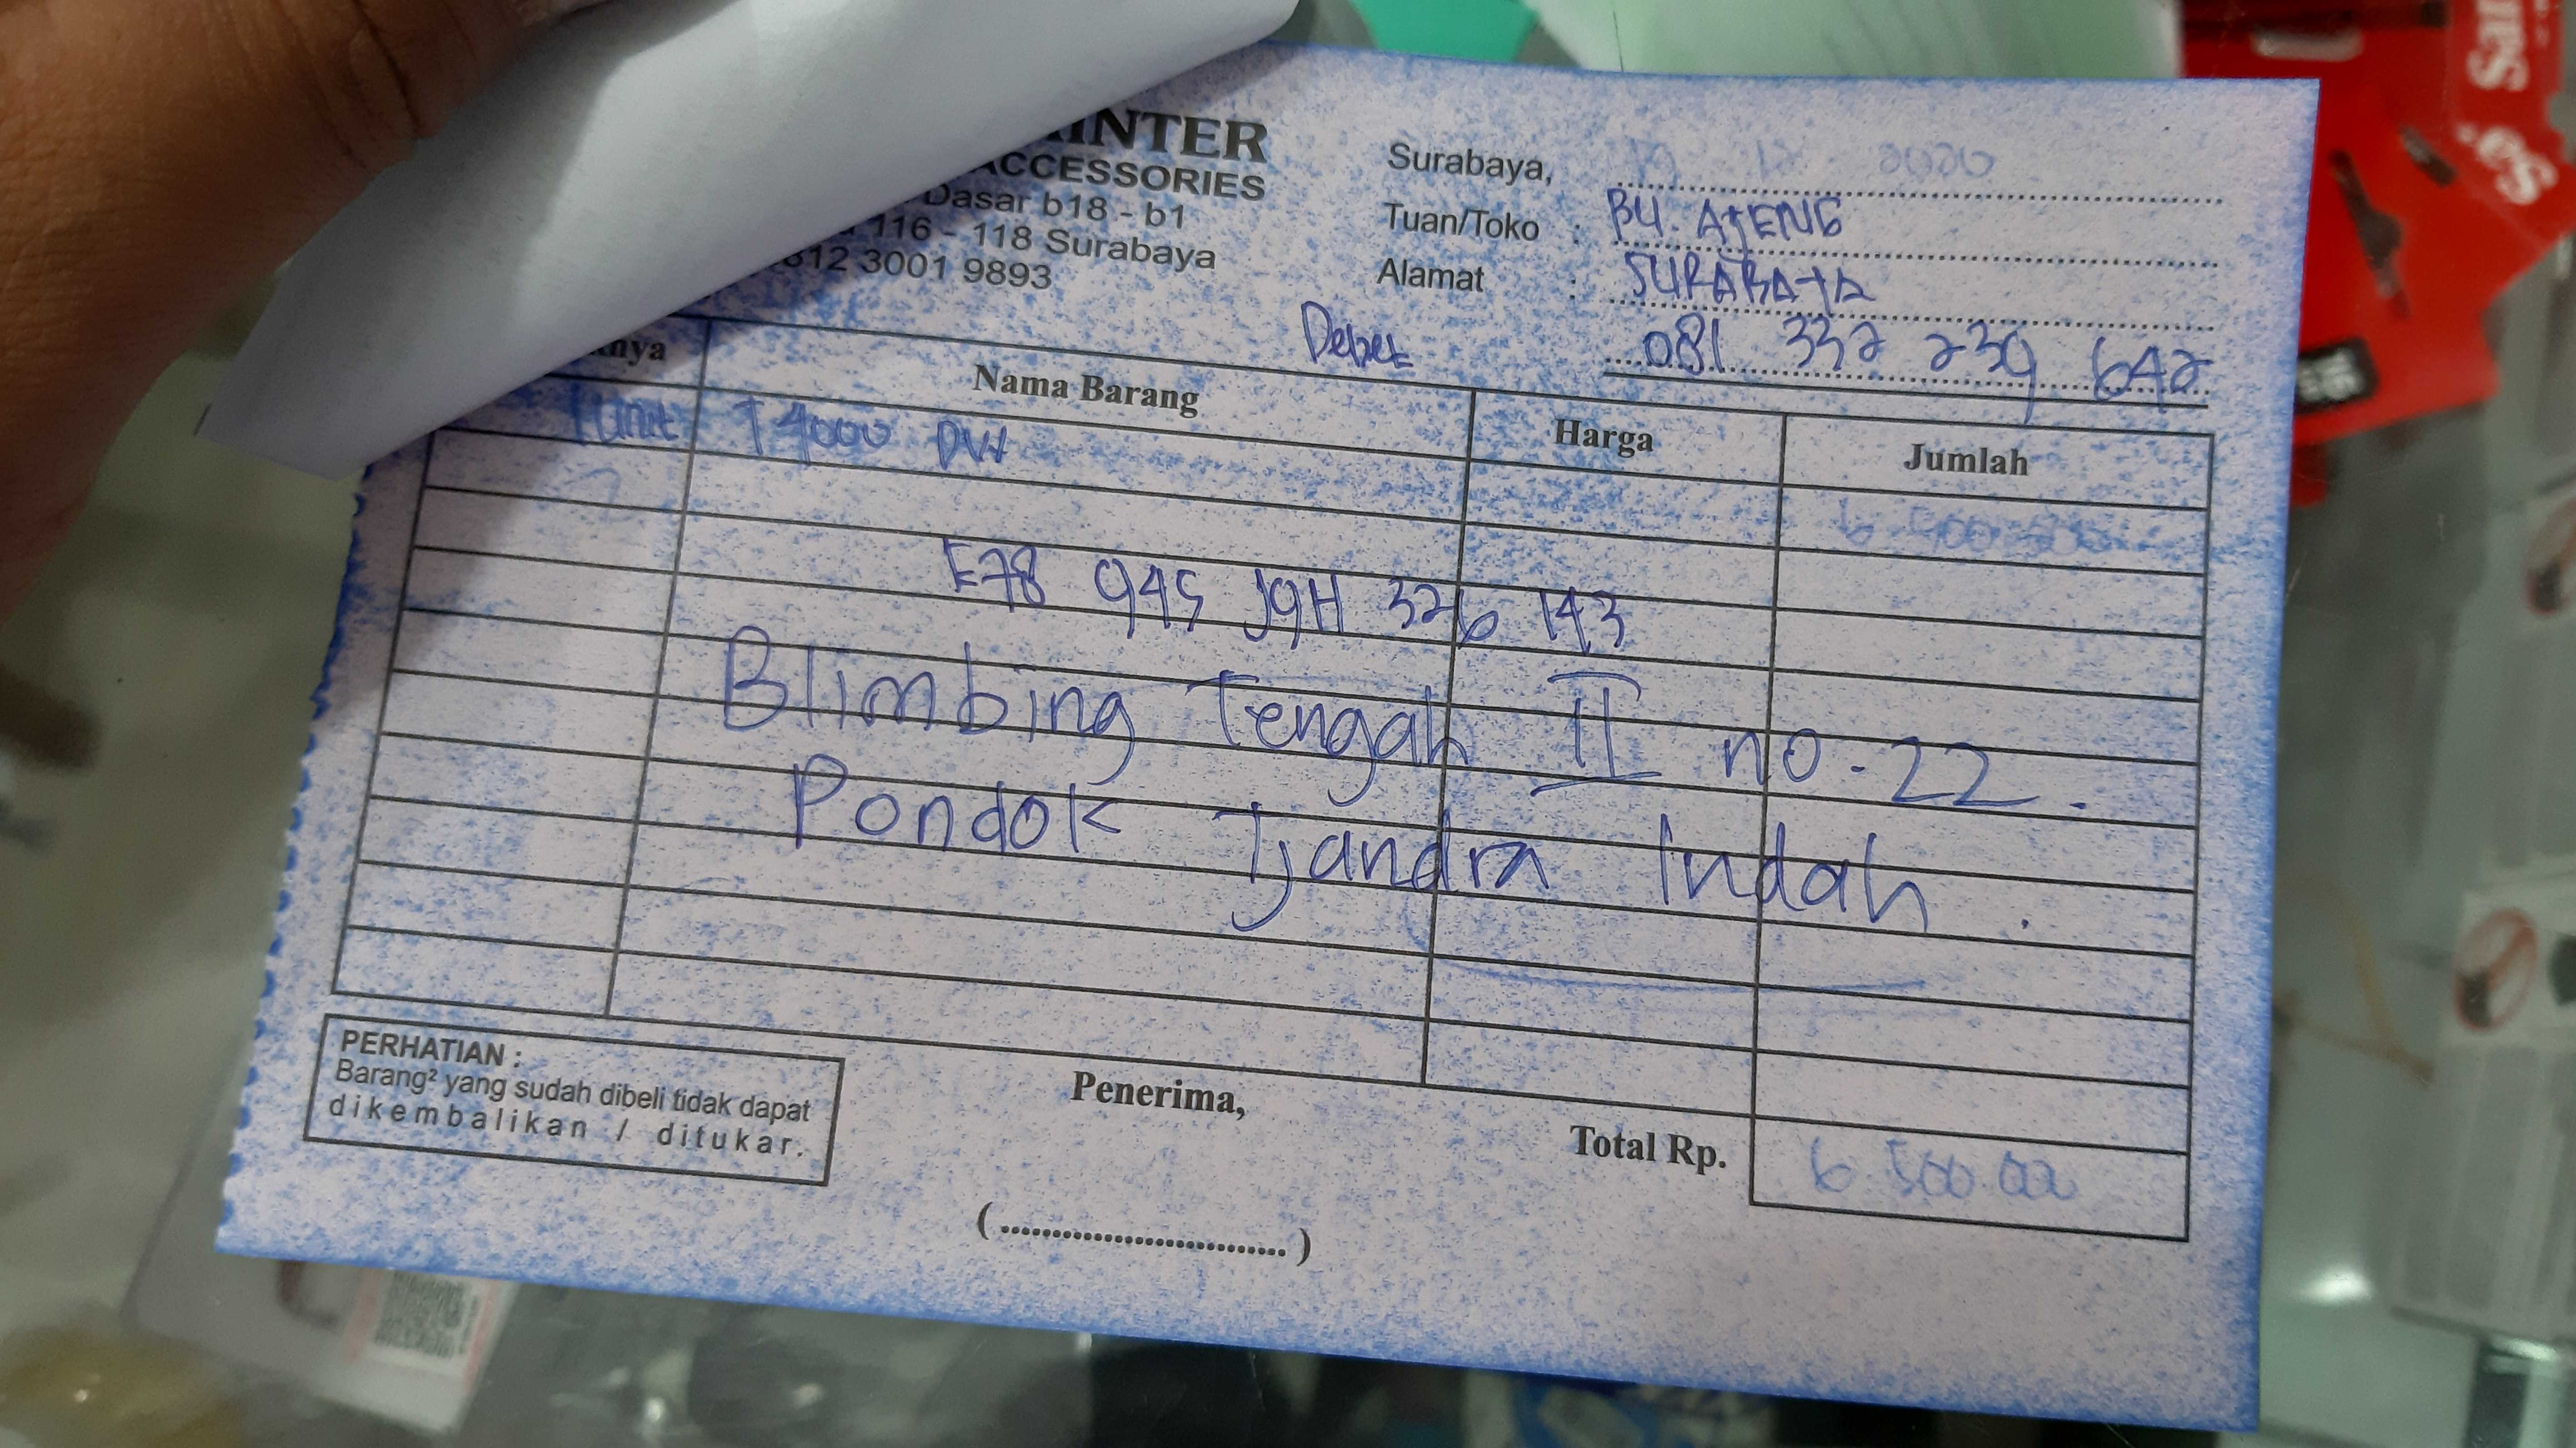 INTER
ACCESSORIES
Dasar b18 - b1
116 - 118 Surabaya
812 3001 9893
Surabaya, 12 2020
Tuan/Toko : BU. AJENG
Alamat : SURABAYA
Debet 081 332 239 642
nya Nama Barang Harga Jumlah
1 Unit T 4000 DW 6 500 000
E78 945 J9H 326 143
Blimbing Tengah II no. 22.
Pondok Tjandra Indah.
PERHATIAN :
Barang² yang sudah dibeli tidak dapat
dikembalikan / ditukar.
Penerima,
(..............................)
Total Rp. 6.500.000
San